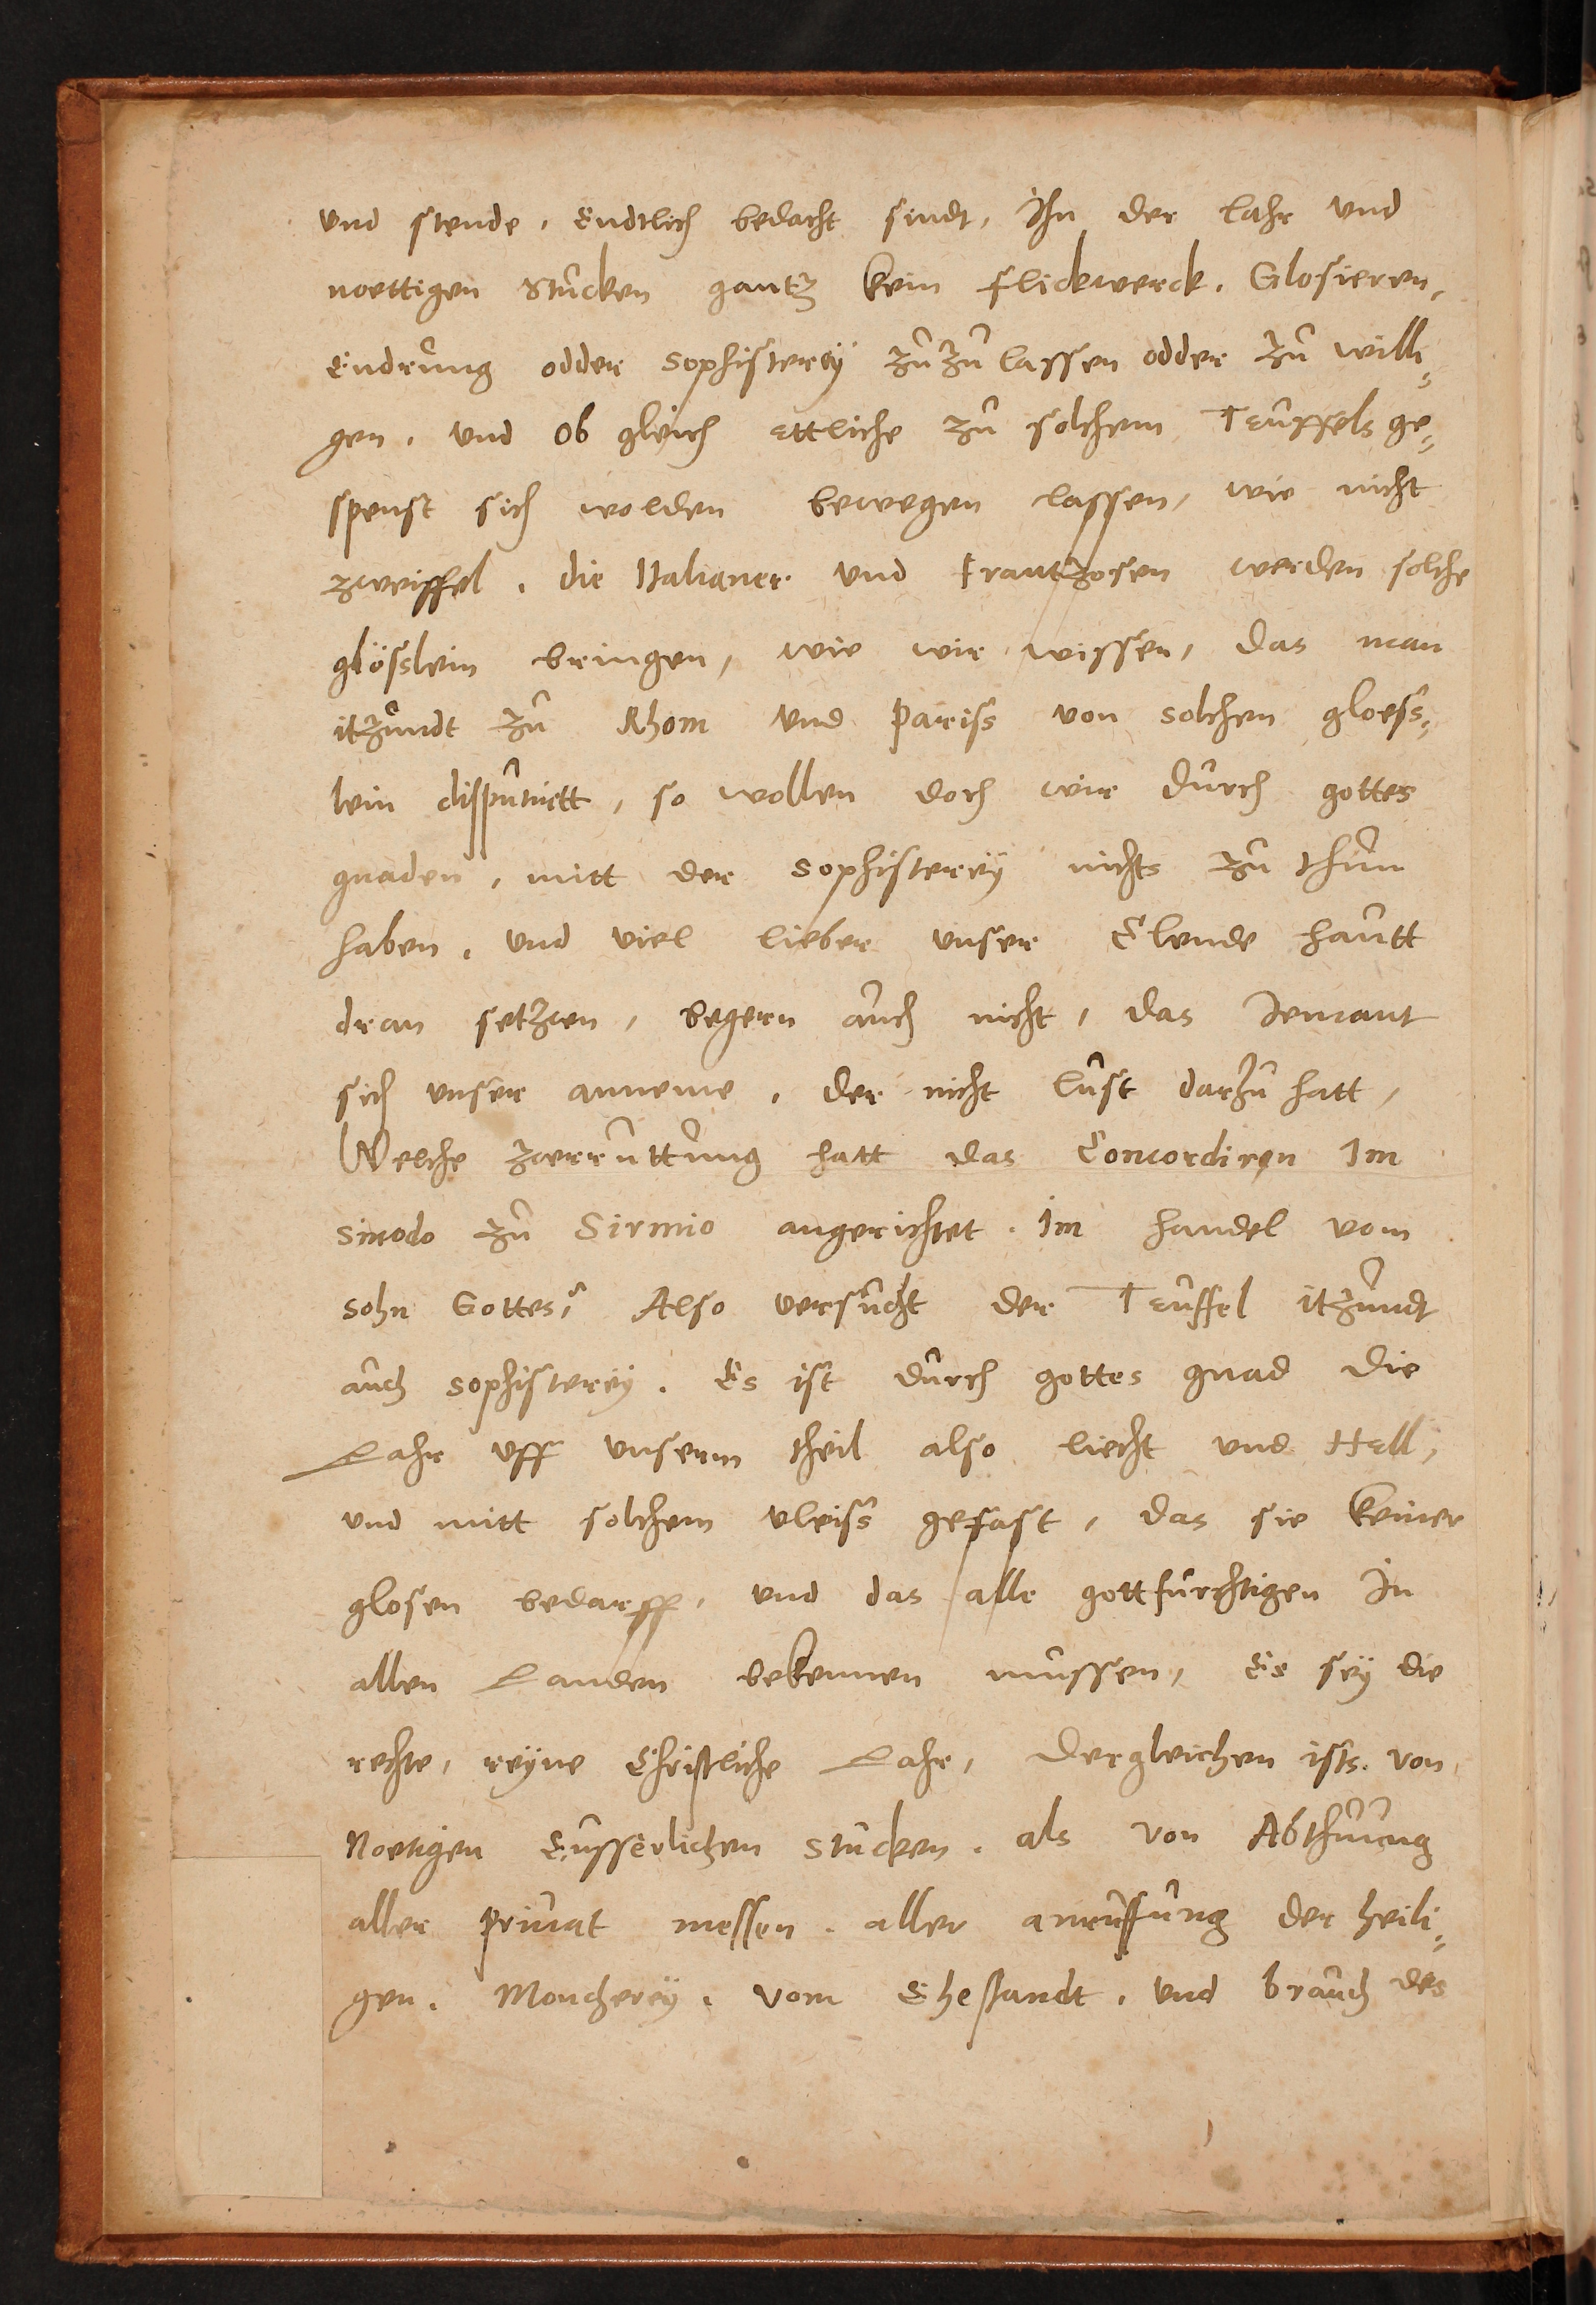 vnd stende, Endtlich bedacht sindt, Ihn der lahr vnd
noettigen Stucken gantz kein flickwerck. Glosieren,
Endrung odder Sophisterey zuzulassen odder zu willi,,
gen. vnd ob gleich ettliche zu solchem Teuffels ge,,
spenst sich wolden bewegen lassen, wie nicht
zweiffel. die Italianer vnd Frantzosen werden solche
glösslein bringen, wie wir wissen, das man
itzundt zu Rhom vnd Pariss von solchen gloess,,
lein disputirtt, so wollen doch wir durch gottes
gnaden, mitt der Sophisterey nichts zu thun
haben. vnd viel lieber vnser Elende hautt
dran setzen, begern auch nicht, das Jemant
sich vnser anneme. der nicht lust darzu hatt,
Welche zerruttung hatt das Concordiren Im
Sinodo zu Sirmio angerichtet. Im handel vom
Sohn Gottes? Also versucht der Teuffel itzundt
auch Sophisterey. Es ist durch gottes gnad die
Lahr vff vnserm theil also liecht vnd Hell,
vnd mitt solchem vleiss gefast, das sie keiner
glosen bedarff, vnd das alle gottfurchtigen In
allen Landen bekennen mussen, Es sey die
rechte, reyne Christliche Lahr, Dergleichen ists. von
Noetigen Eusserlichen Stucken. als von Abthuung
aller priuat messen. aller anruffung der heili,,
gen. Moncherey. vom Ehestandt. vnd brauch des